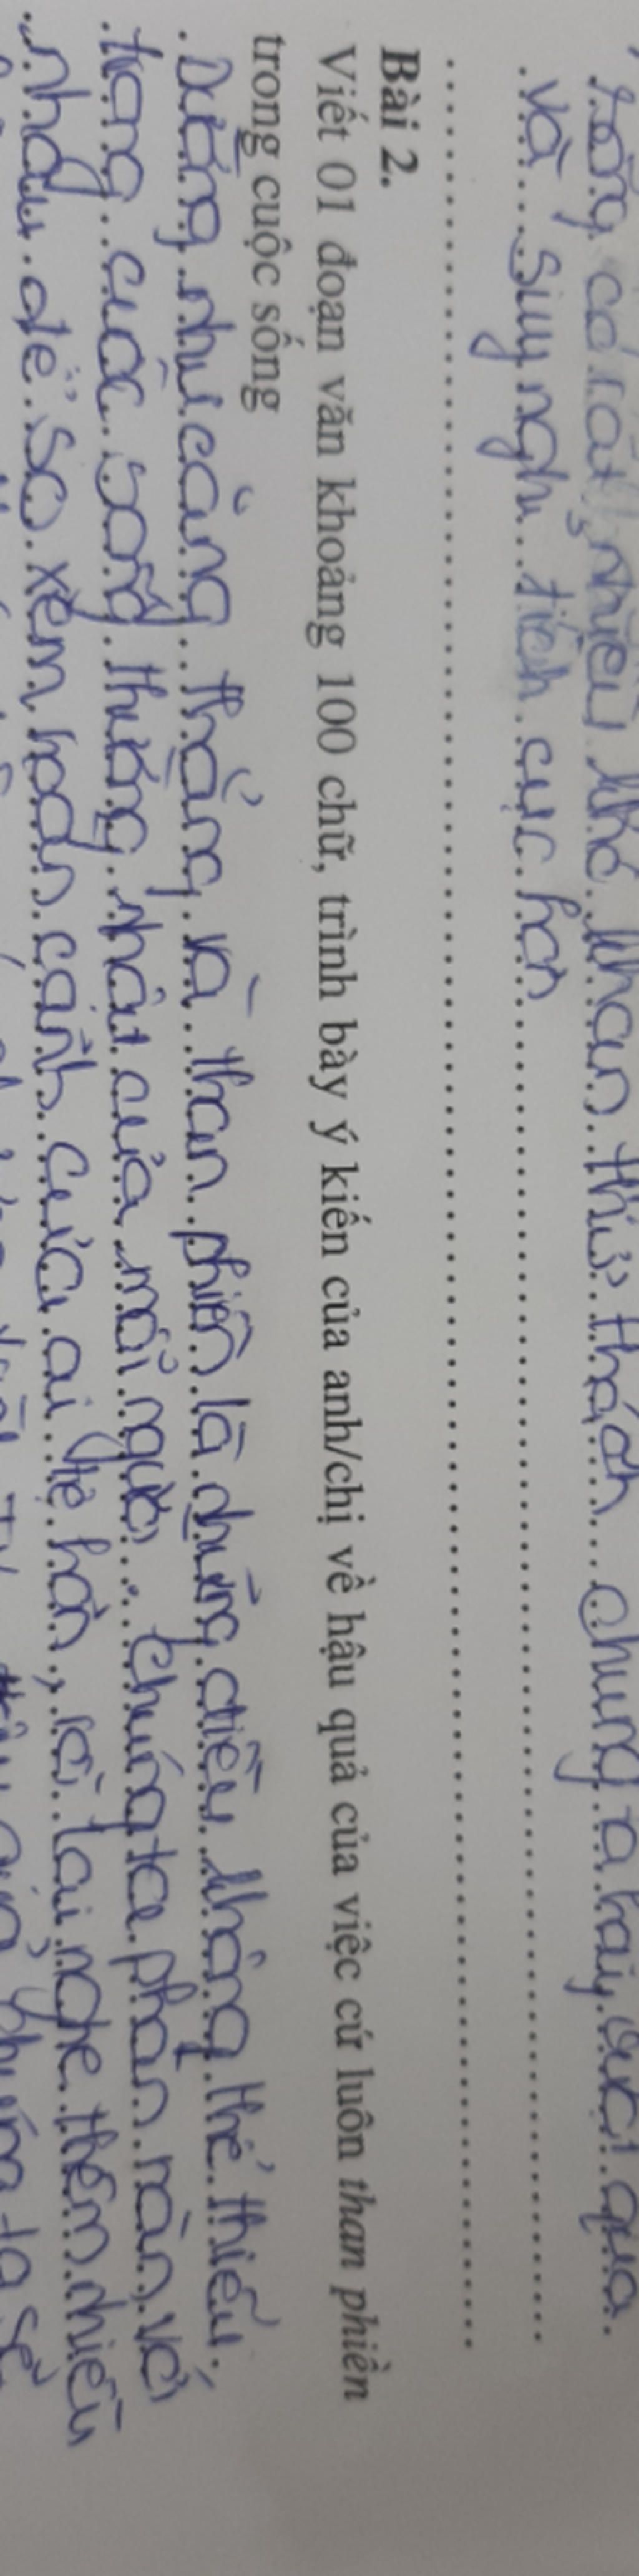 sống có rất nhiều khó khăn thử thách chúng ta hãy vượt qua.
và suy nghĩ tích cực hơn
Bài 2.
Viết 01 đoạn văn khoảng 100 chữ, trình bày ý kiến của anh/chị về hậu quả của việc cứ luôn than phiền
trong cuộc sống
Dường như căng thẳng và than phiền là những điều không thể thiếu,
trong cuộc sống thường nhật của mỗi người. Chúng ta phàn nàn với
nhau để so xem hoàn cảnh của ai tệ hơn, rồi lại nghe thêm nhiều